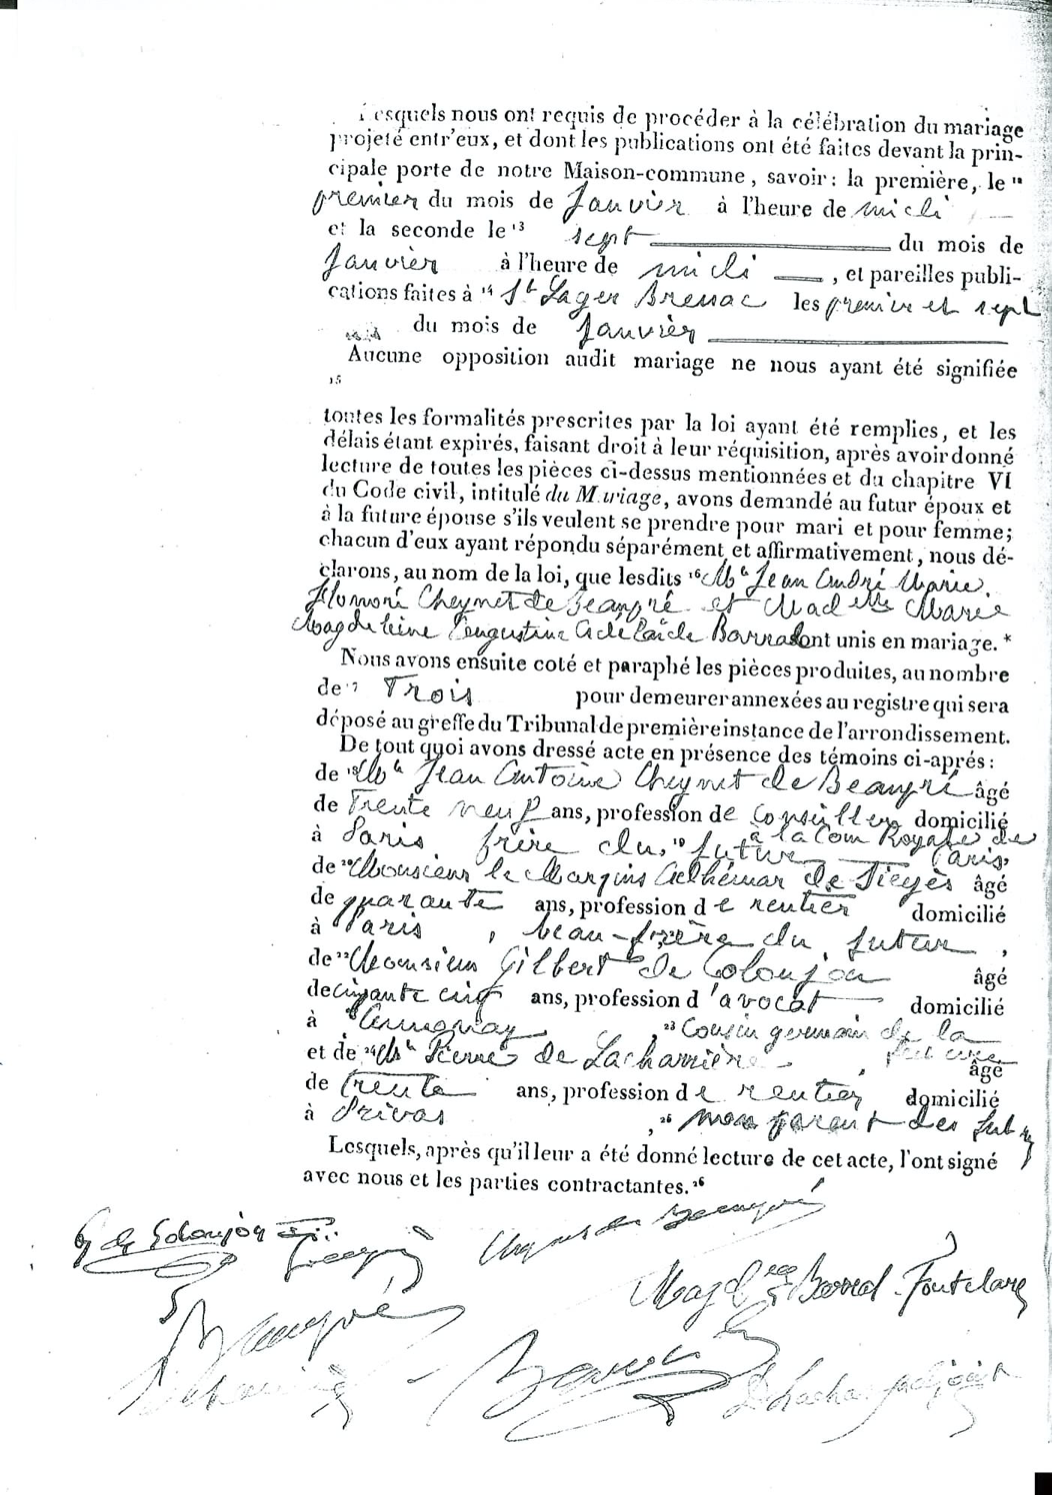 Lesquels nous ont requis de procéder à la célébration du mariage
projeté entr'eux, et dont les publications ont été faites devant la prin-
cipale porte de notre Maison-commune, savoir : la première, le 12
premier du mois de Janvier à l'heure de midi
et la seconde le 13 sept du mois de
Janvier à l'heure de midi, et pareilles publi-
cations faites à 14 St Lager Bressac les premier et sept
du mois de Janvier
Aucune opposition audit mariage ne nous ayant été signifiée
15
toutes les formalités prescrites par la loi ayant été remplies, et les
délais étant expirés, faisant droit à leur réquisition, après avoir donné
lecture de toutes les pièces ci-dessus mentionnées et du chapitre VI
du Code civil, intitulé du Mariage, avons demandé au futur époux et
à la future épouse s'ils veulent se prendre pour mari et pour femme ;
chacun d'eux ayant répondu séparément et affirmativement, nous dé-
clarons, au nom de la loi, que lesdits 16 Mr Jean André Marie
Cheynet de Beaupré et Madelle Marie
Magdeleine Augustine Adelaïde Barral sont unis en mariage. *
Nous avons ensuite coté et paraphé les pièces produites, au nombre
de 17 Trois pour demeurer annexées au registre qui sera
déposé au greffe du Tribunal de première instance de l'arrondissement.
De tout quoi avons dressé acte en présence des témoins ci-après :
de 18 Mr Jean Antoine Cheynet de Beaupré âgé
de Trente neuf ans, profession de Conseiller domicilié
à la Cour Royale de Paris
à Paris, frère du 19 futur
de 20 Monsieur le Marquis Adhémar de Sieyès âgé
de quarante ans, profession de rentier domicilié
à Paris, beau-frère du futur,
de 22 Monsieur Gilbert de Colonjon âgé
de cinquante cinq ans, profession d'avocat domicilié
à Annonay, 23 Cousin germain de la future
et de 24 Mr Pierre de Lacharrière, âgé
de trente ans, profession de rentier domicilié
à Privas, 25 non parent des futurs
Lesquels, après qu'il leur a été donné lecture de cet acte, l'ont signé
avec nous et les parties contractantes. 26
G de Colonjon
Cheynet de Beaupré
Magd Barral Fontclare
Beaupré